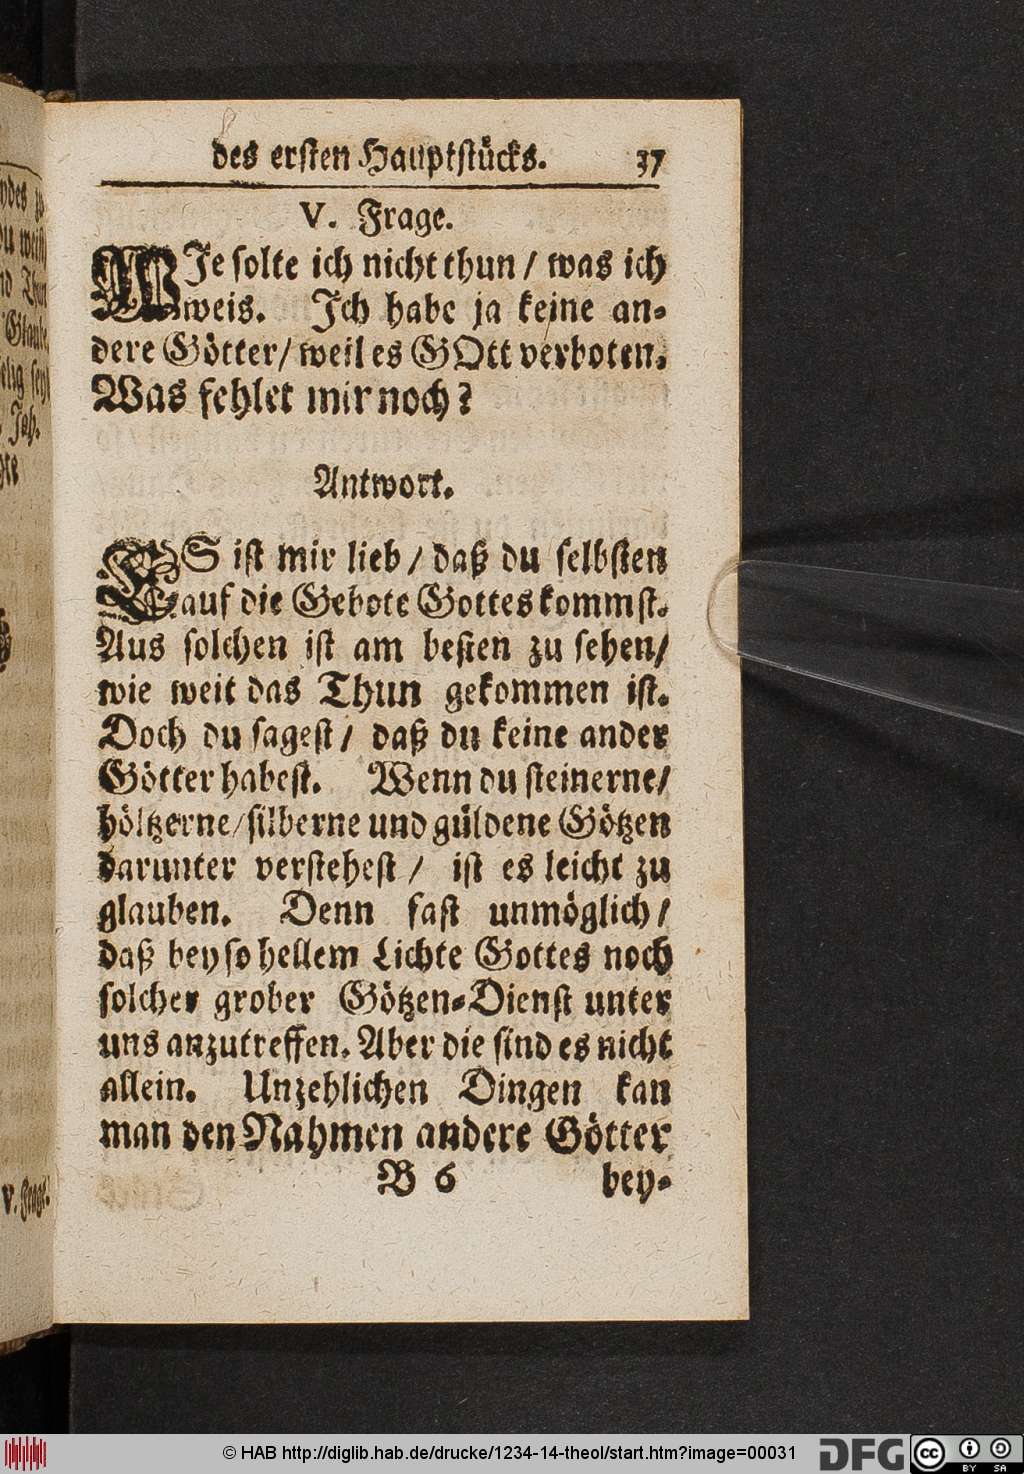 des ersten Hauptstücks. 37
V. Frage.
WJe solte ich nicht thun / was ich
weis. Jch habe ja keine an-
dere Götter / weil es GOtt verboten.
Was fehlet mir noch?
Antwort.
ES ist mir lieb / daß du selbsten
auf die Gebote Gottes kommst.
Aus solchen ist am besten zu sehen /
wie weit das Thun gekommen ist.
Doch du sagest / daß du keine ander
Götter habest. Wenn du steinerne /
höltzerne / silberne und güldene Götzen
darunter verstehest / ist es leicht zu
glauben. Denn fast unmöglich /
daß bey so hellem Lichte Gottes noch
solcher grober Götzen-Dienst unter
uns anzutreffen. Aber die sind es nicht
allein. Unzehlichen Dingen kan
man den Nahmen andere Götter
B 6 bey-
V. Frage.
© HAB http://diglib.hab.de/drucke/1234-14-theol/start.htm?image=00031
DFG
cc BY SA